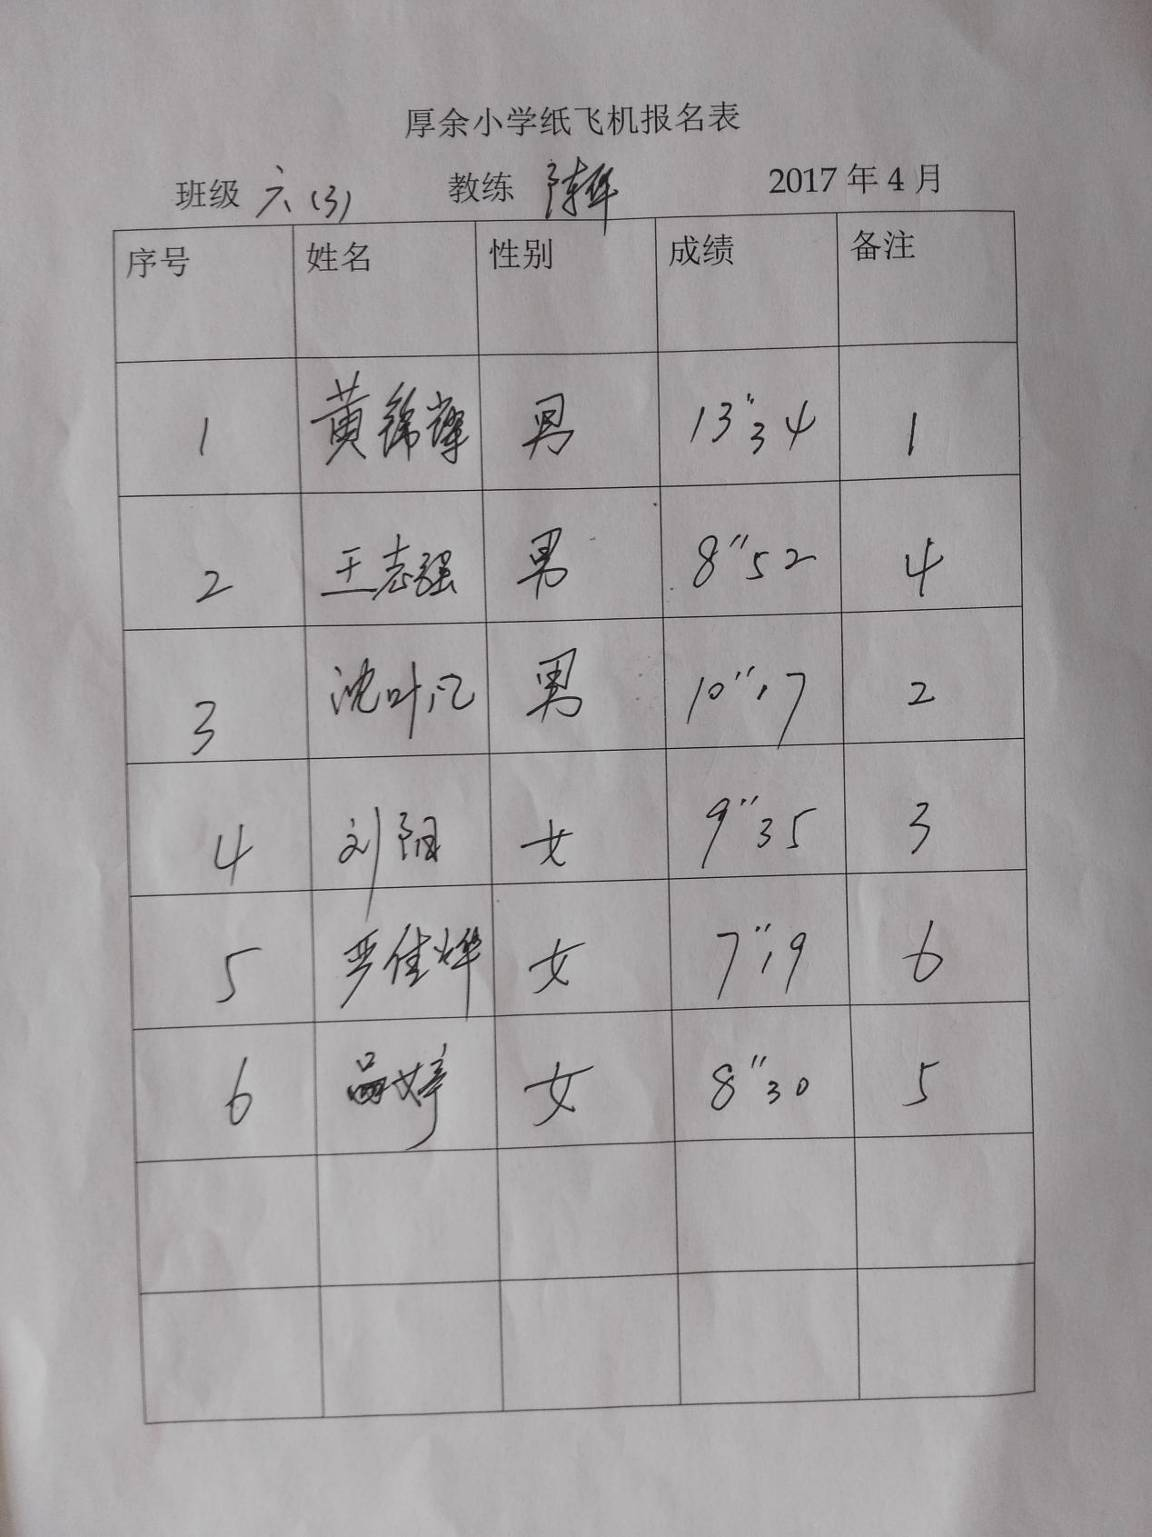 厚余小学纸飞机报名表
班级 六(3) 教练 陈华 2017年4月
序号 姓名 性别 成绩 备注
1 黄锦辉 男 13"34 1
2 王志强 男 8"52 4
3 沈叶凡 男 10"17 2
4 刘阳 女 9"35 3
5 严佳烨 女 7"19 6
6 婷 女 8"30 5